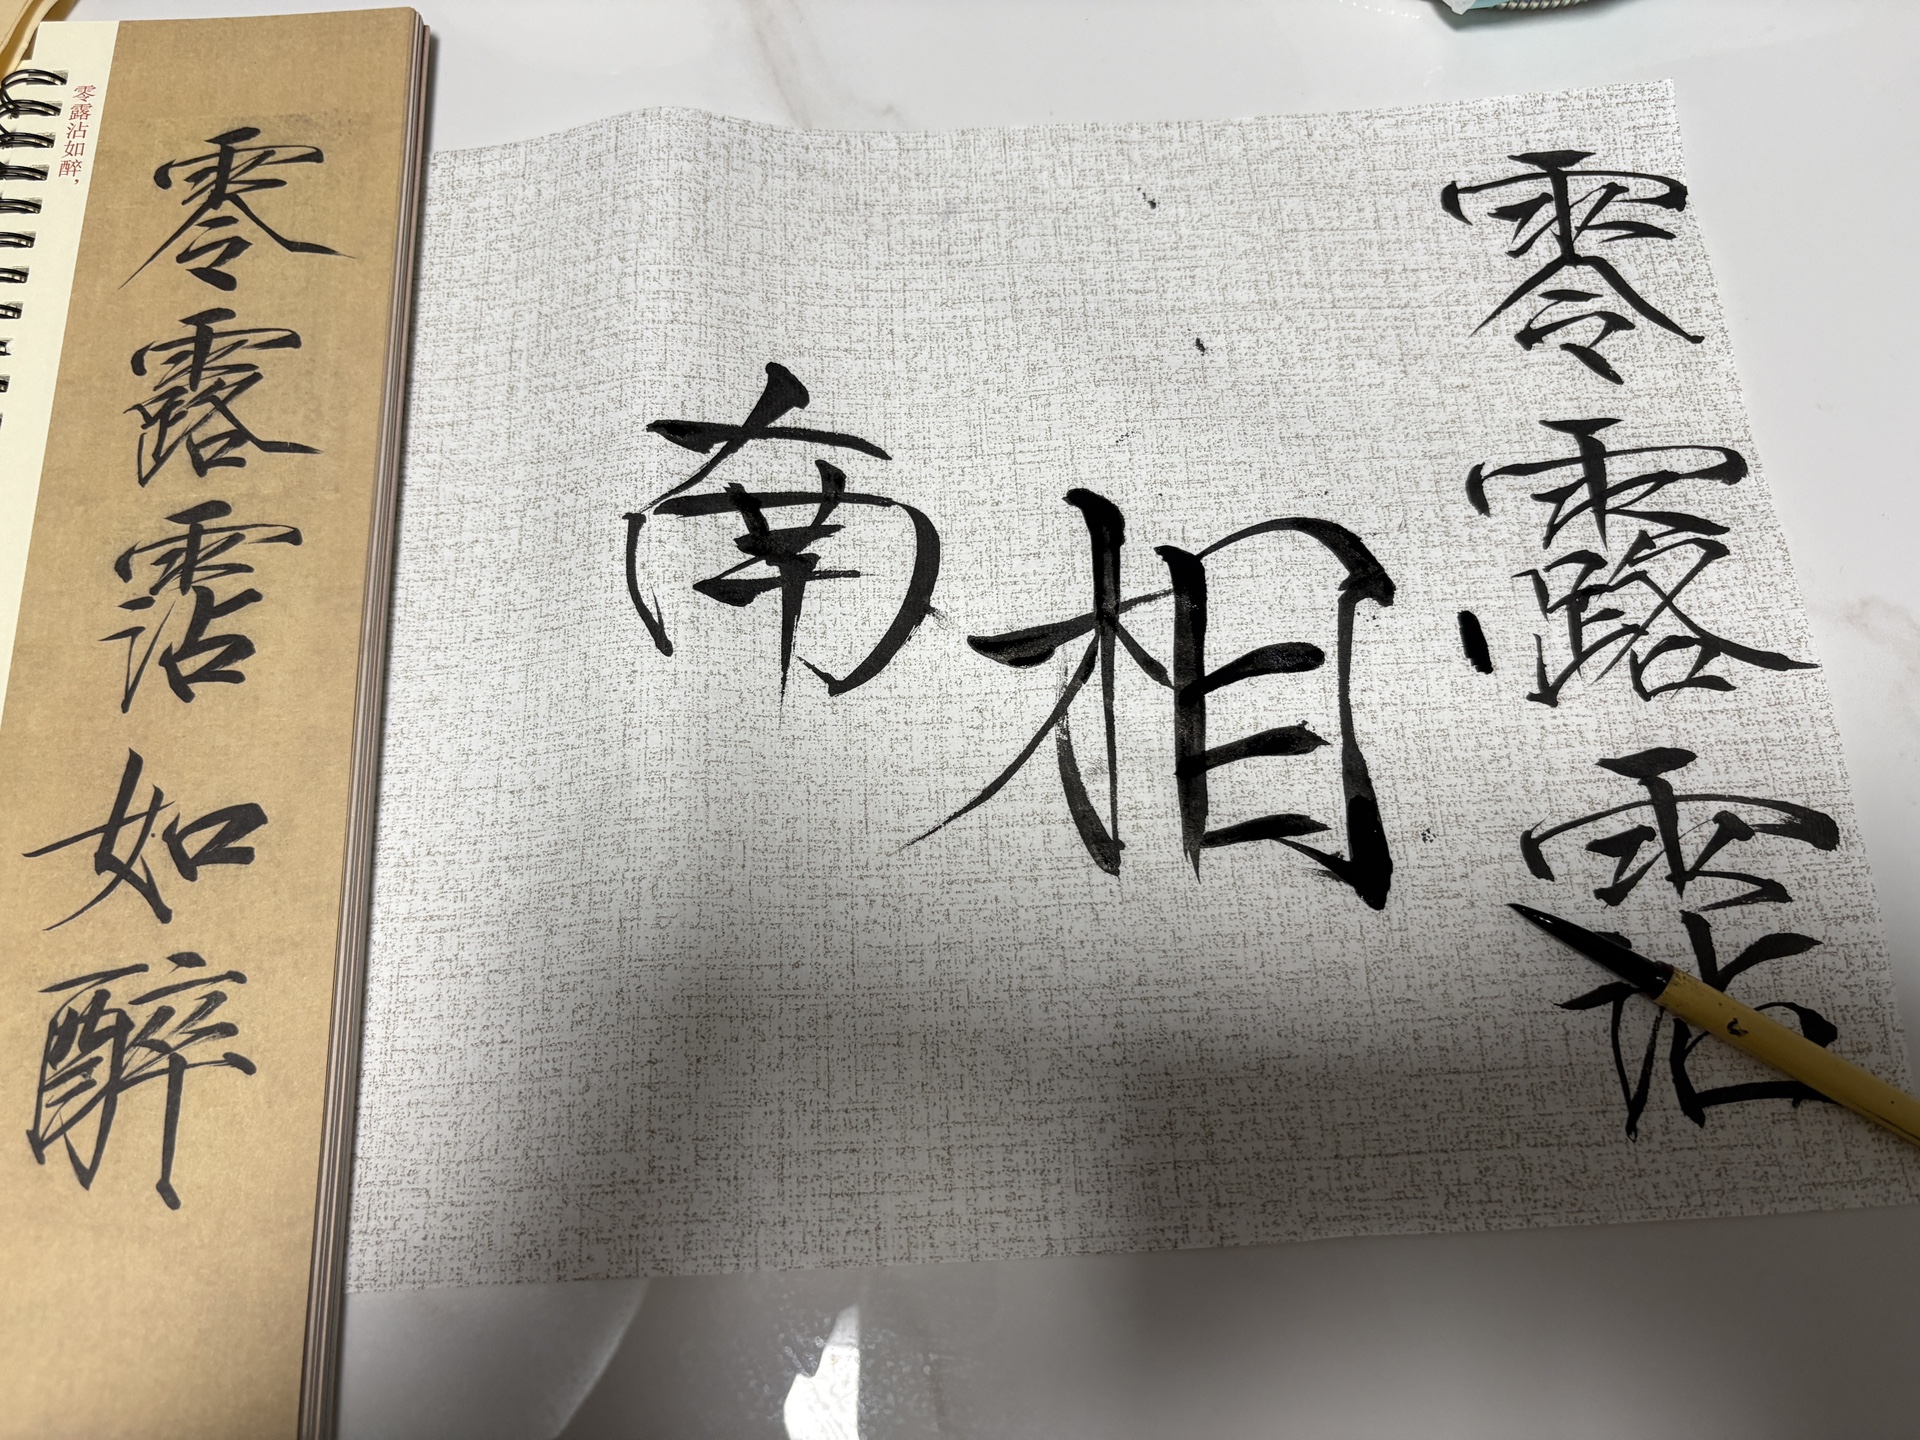 零露沾如醉，
零露霑如醉
南相
零露霑